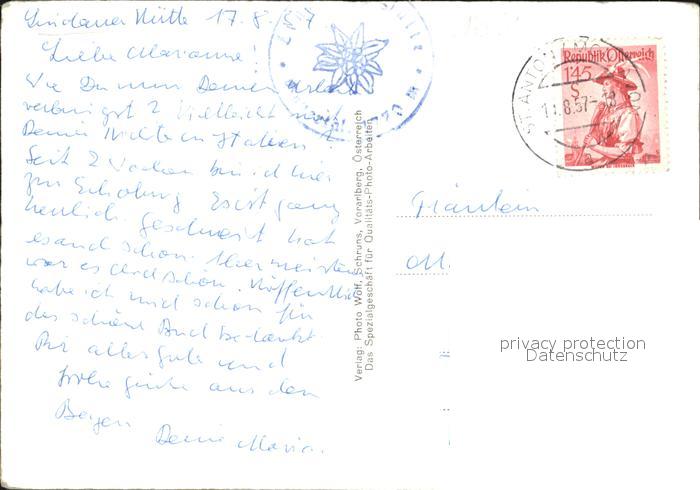 Lindauer Hütte 17.8.57
Liebe Marianne!
Wo Du nun Deinen Urlaub
verbringst? Vielleicht mit
Deine Nichte in Italien?
Seit 2 Wochen bin ich hier
zur Erholung. Es ist ganz
herrlich. Geschneit hat
es auch schon. Aber meistens
war es doch schön. Hoffentlich
habe ich mich schon für
das schöne Buch bedankt.
Dir alles Gute und
frohe Grüße aus den
Bergen
Deine Maria.
Verlag: Photo Wolf, Schruns, Vorarlberg, Österreich
Das Spezialgeschäft für Qualitäts-Photo-Arbeiten
Republik Österreich
1'45
S
ST. ANTON I. MO
.8.57-18
a
Fräulein
M.
privacy protection
Datenschutz